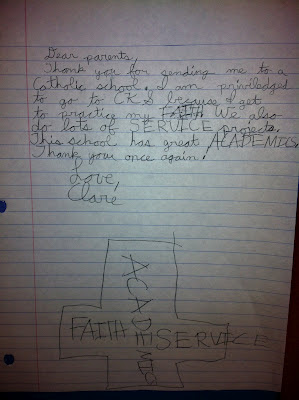 Dear parents,
Thank you for sending me to a
Catholic school. I am priviledged
to go to CKS because I get
to practice my FAITH. We also
do lots of SERVICE projects.
This school has great ACADEMICS.
Thank you once again!
Love,
Clare
ACADEMICS
FAITH SERVICE